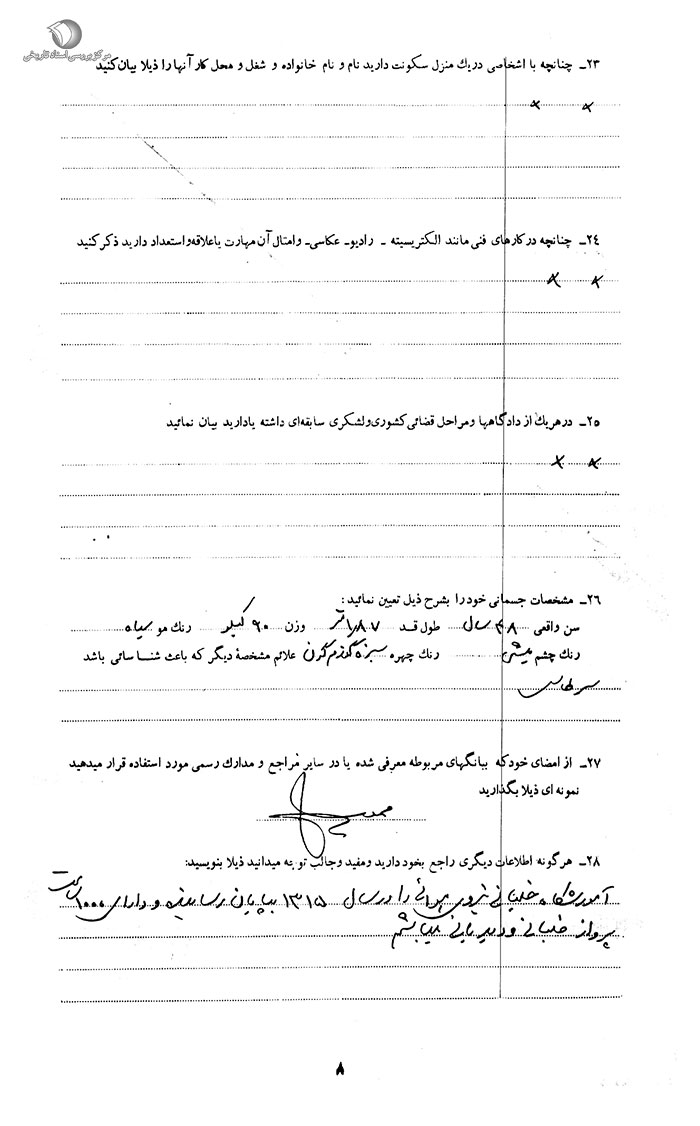 مرکز بررسی اسناد تاریخی
۲۳ـ چنانچه با اشخاصی دریك منزل سکونت دارید نام و نام خانواده و شغل و محل کار آنها را ذیلا بیان کنید
× ×
۲۴ـ چنانچه در کارهای فنی مانند الکتریسیته ـ رادیو ـ عکاسی ـ و امثال آن مهارت یا علاقه و استعداد دارید ذکر کنید
× ×
۲۵ـ در هریك از دادگاهها و مراحل قضائی کشوری و لشکری سابقه‌ای داشته یا دارید بیان نمائید
× ×
۲۶ـ مشخصات جسمانی خود را بشرح ذیل تعیین نمائید :
سن واقعی ۴۸ سال طول قد ۱٫۸۷ متر وزن ۹۰ کیلو رنك مو سیاه
رنك چشم میشی رنك چهره سبزه گندم گون علائم مشخصهٔ دیگر که باعث شناسائی باشد
سر طاس
۲۷ـ از امضای خود که ببانگهای مربوطه معرفی شده یا در سایر مراجع و مدارك رسمی مورد استفاده قرار میدهید
نمونه ای ذیلا بگذارید
۲۸ـ هرگونه اطلاعات دیگری راجع بخود دارید و مفید و جالب توجه میدانید ذیلا بنویسید:
آموزشگاه خلبانی نیروی هوائی را در سال ۱۳۱۵ بپایان رسانیده و دارای ۱۰۰۰ ساعت
پرواز خلبانی و دیدبانی میباشم
۸